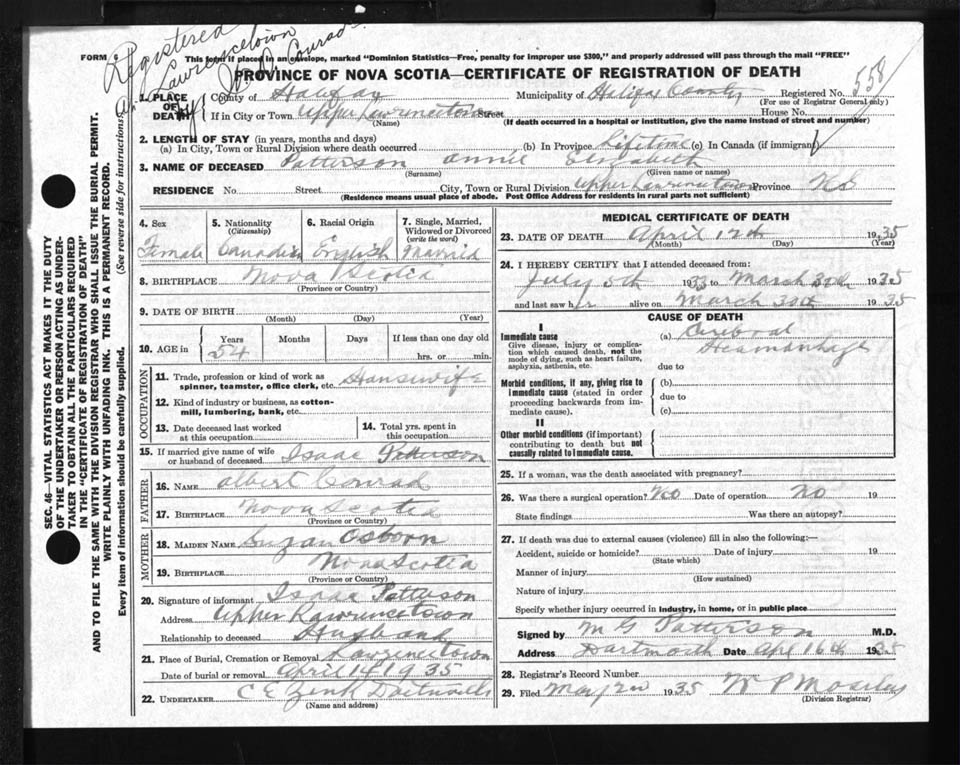 Registered
Lawrencetown
Conrad
FORM
This form if placed in an envelope, marked "Dominion Statistics—Free, penalty for Improper use $300," and properly addressed will pass through the mail "FREE"
PROVINCE OF NOVA SCOTIA—CERTIFICATE OF REGISTRATION OF DEATH
558
1. PLACE OF DEATH County of Halifax Municipality of Halifax County Registered No.
(For use of Registrar General only)
If in City or Town Upper Lawrencetown Street House No.
(Name) (If death occurred in a hospital or institution, give the name instead of street and number)
2. LENGTH OF STAY (in years, months and days)
(a) In City, Town or Rural Division where death occurred (b) In Province Lifetime (c) In Canada (if immigrant)
3. NAME OF DECEASED Patterson Annie Elizabeth
(Surname) (Given name or names)
RESIDENCE No. Street City, Town or Rural Division Upper Lawrencetown Province NS
(Residence means usual place of abode. Post Office Address for residents in rural parts not sufficient)
4. Sex Female
5. Nationality (Citizenship) Canadian
6. Racial Origin English
7. Single, Married, Widowed or Divorced (write the word) Married
8. BIRTHPLACE Nova Scotia
(Province or Country)
9. DATE OF BIRTH
(Month) (Day) (Year)
10. AGE in Years Months Days If less than one day old
54 hrs. or min.
OCCUPATION
11. Trade, profession or kind of work as Housewife
spinner, teamster, office clerk, etc.
12. Kind of industry or business, as cotton-
mill, lumbering, bank, etc.
13. Date deceased last worked at this occupation
14. Total yrs. spent in this occupation
15. If married give name of wife or husband of deceased Isaac Patterson
FATHER
16. NAME Albert Conrad
17. BIRTHPLACE Nova Scotia
(Province or Country)
MOTHER
18. MAIDEN NAME Suzan Osborn
19. BIRTHPLACE Nova Scotia
(Province or Country)
20. Signature of informant Isaac Patterson
Address Upper Lawrencetown
Relationship to deceased Husband
21. Place of Burial, Cremation or Removal Lawrencetown
Date of burial or removal April 14 1935
22. UNDERTAKER C E Zink Dartmouth
(Name and address)
MEDICAL CERTIFICATE OF DEATH
23. DATE OF DEATH April 12th 1935
(Month) (Day) (Year)
24. I HEREBY CERTIFY that I attended deceased from:
July 5th 1933 to March 30th 1935
and last saw her alive on March 30th 1935
CAUSE OF DEATH
I
Immediate cause (a) Cerebral
Give disease, injury or complica- Heamorrhage
tion which caused death, not the
mode of dying, such as heart failure,
asphyxia, asthenia, etc. due to
Morbid conditions, if any, giving rise to (b)
immediate cause (stated in order due to
proceeding backwards from im- (c)
mediate cause).
II
Other morbid conditions (if important)
contributing to death but not
causally related to immediate cause.
25. If a woman, was the death associated with pregnancy?
26. Was there a surgical operation? No Date of operation No 19
State findings Was there an autopsy?
27. If death was due to external causes (violence) fill in also the following:—
Accident, suicide or homicide? Date of injury 19
(State which)
Manner of injury
(How sustained)
Nature of injury
Specify whether injury occurred in industry, in home, or in public place
Signed by M G Patterson M.D.
Address Dartmouth Date Apl 16th 1935
28. Registrar's Record Number
29. Filed May 2nd 1935
(Division Registrar)
SEC. 46—VITAL STATISTICS ACT MAKES IT THE DUTY
OF THE UNDERTAKER OR PERSON ACTING AS UNDER-
TAKER TO OBTAIN ALL THE PARTICULARS REQUIRED
IN THE "CERTIFICATE OF REGISTRATION OF DEATH"
AND TO FILE THE SAME WITH THE DIVISION REGISTRAR WHO SHALL ISSUE THE BURIAL PERMIT.
WRITE PLAINLY WITH UNFADING INK. THIS IS A PERMANENT RECORD.
Every item of information should be carefully supplied. (See reverse side for instructions)